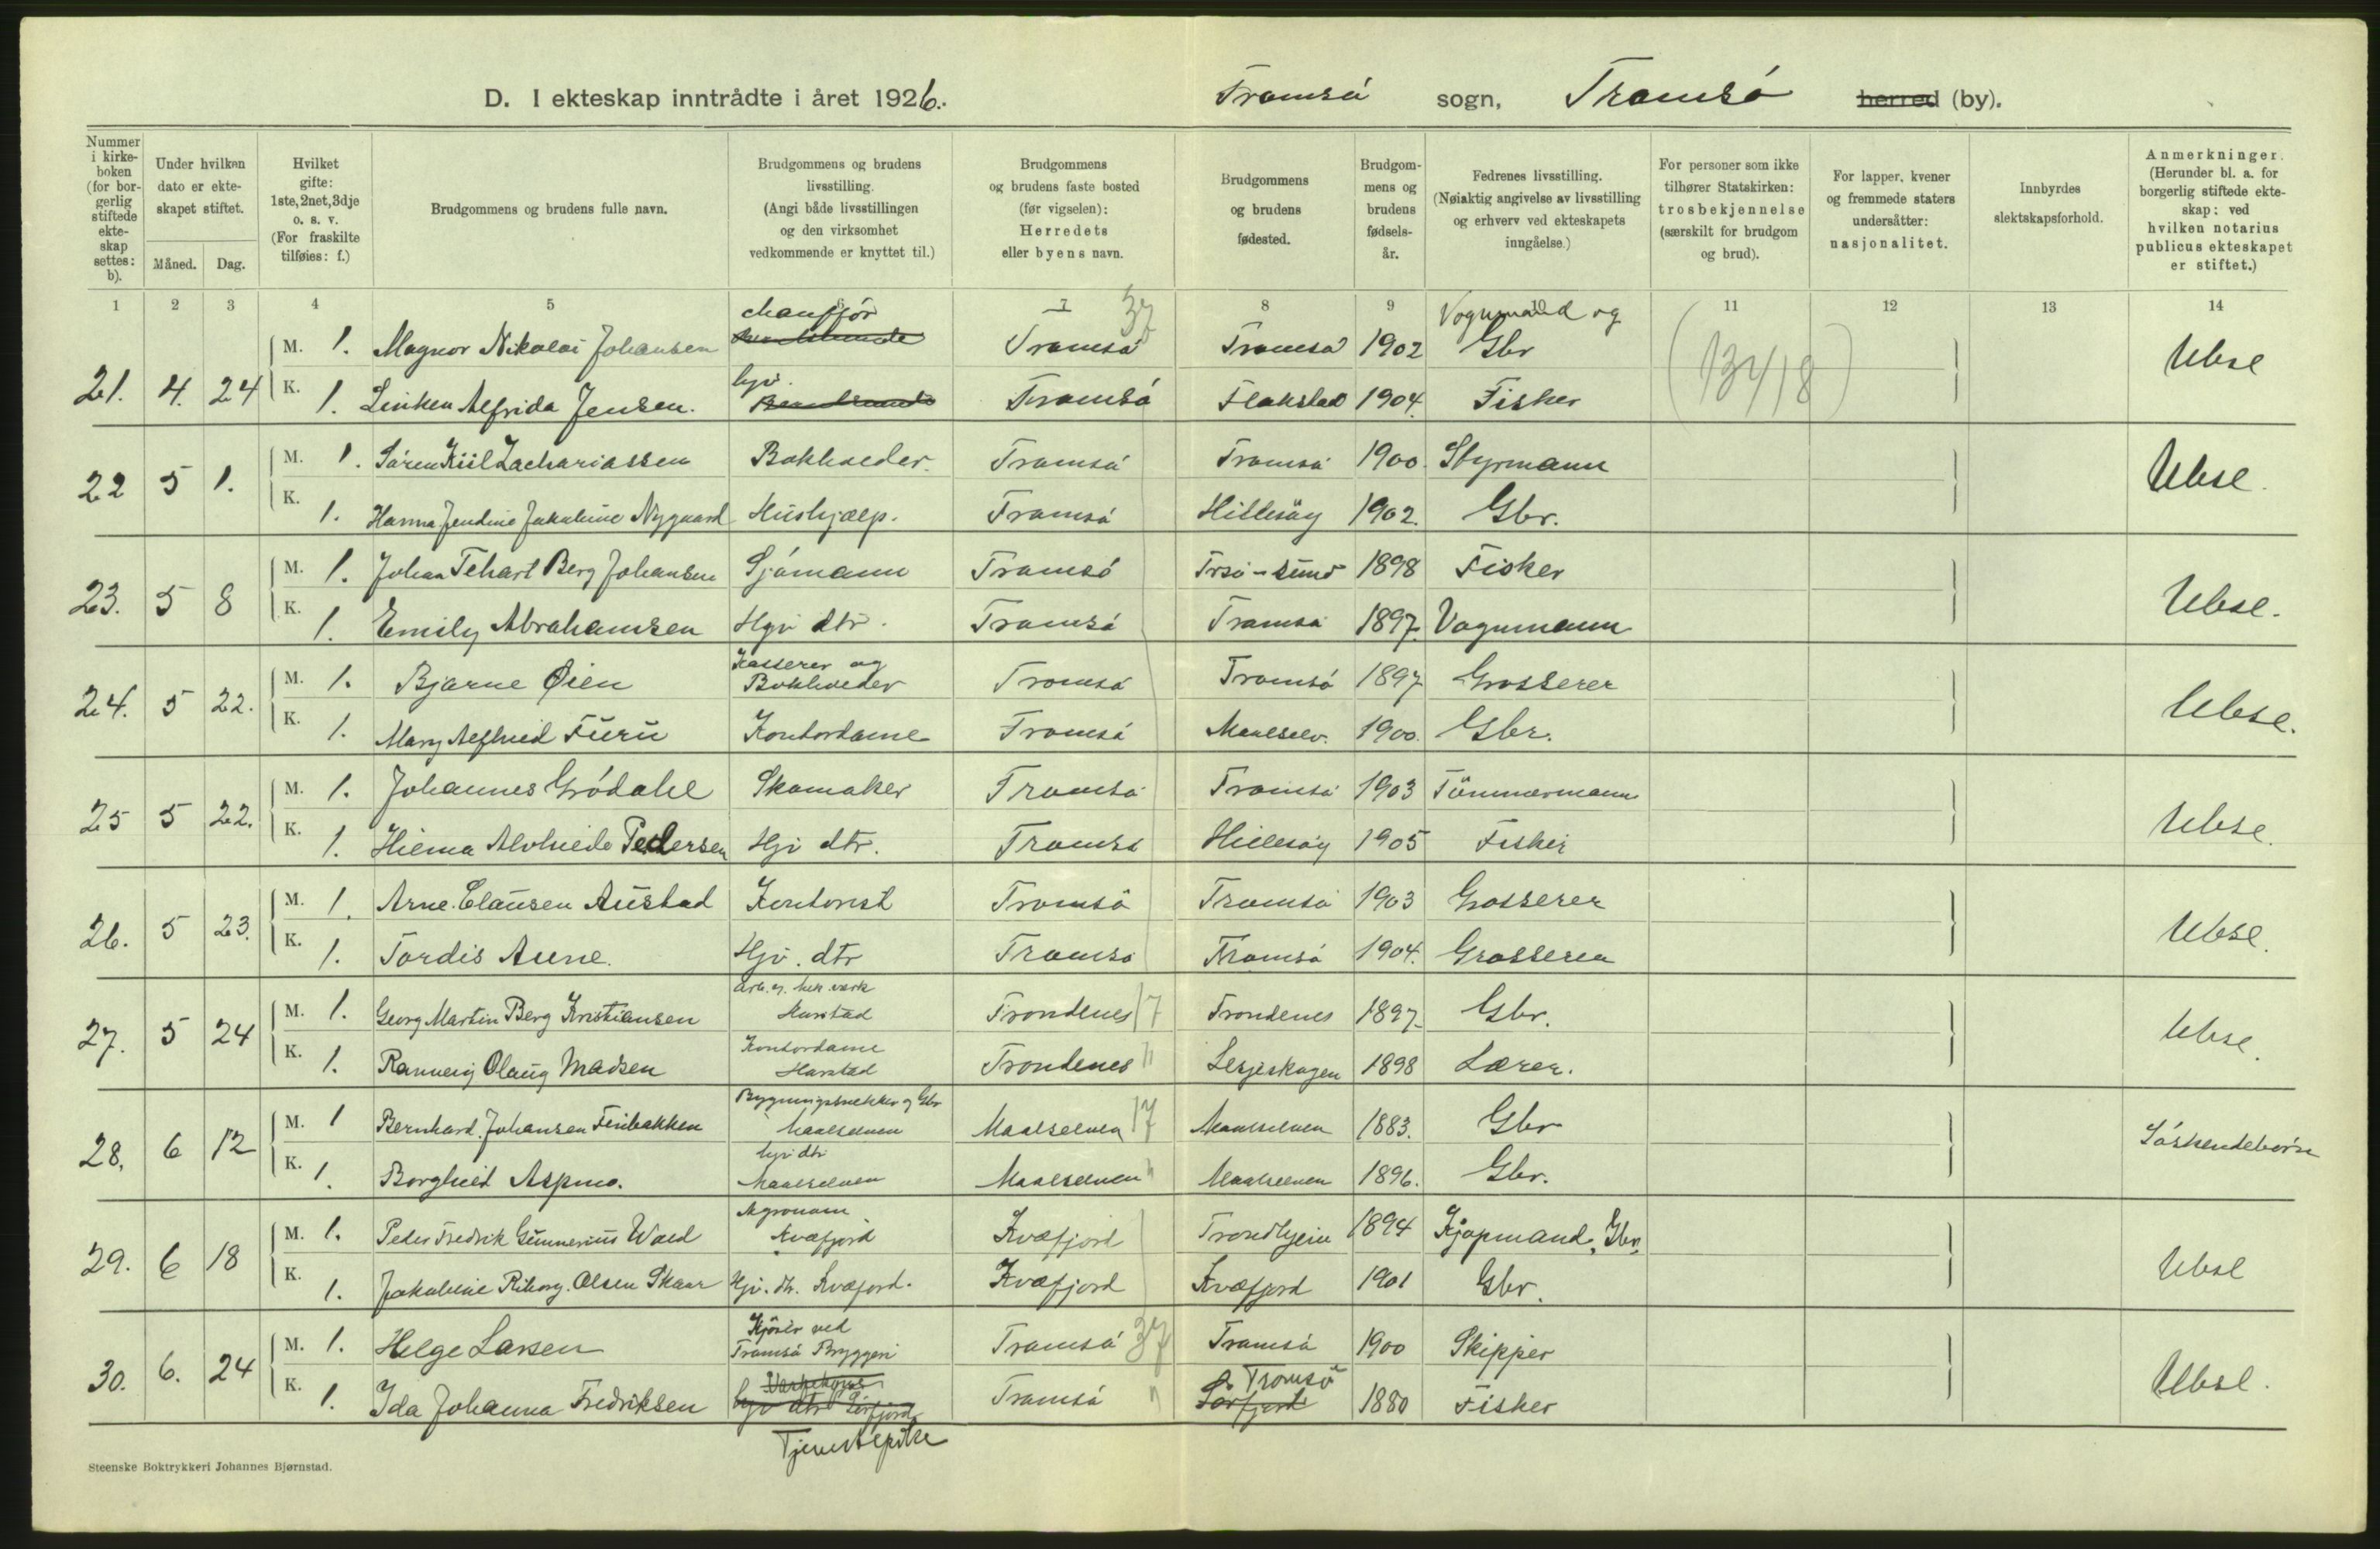 D. I ekteskap inntrådte i året 1926. Tromsö sogn, Tromsö herred (by).
Nummer i kirke-boken (for bor-gerlig stiftede ekte-skap settes: b).
Under hvilken dato er ekte-skapet stiftet.
Måned. Dag.
Hvilket gifte: 1ste, 2net, 3dje o. s. v. (For fraskilte tilføies: f.)
Brudgommens og brudens fulle navn.
Brudgommens og brudens livsstilling. (Angi både livsstillingen og den virksomhet vedkommende er knyttet til.)
Brudgommens og brudens faste bosted (før vigselen): Herredets eller byens navn.
Brudgommens og brudens fødested.
Brudgom-mens og brudens fødsels-år.
Fedrenes livsstilling. (Nøiaktig angivelse av livsstilling og erhverv ved ekteskapets inngåelse.)
For personer som ikke tilhører Statskirken: trosbekjennelse (særskilt for brudgom og brud).
For lapper, kvener og fremmede staters undersåtter: nasjonalitet.
Innbyrdes slektskapsforhold.
Anmerkninger. (Herunder bl. a. for borgerlig stiftede ekte-skap: ved hvilken notarius publicus ekteskapet er stiftet.)
1 2 3 4 5 6 7 8 9 10 11 12 13 14
chauffór 37 Vognmand og
M. 1. Magnor Nikolai Johansen Tromsö Tromsö 1902 Gbr (13418) Ubsl
21. 4. 24 K. 1. Linken Alfrida Jensen. hjv. Tromsö Flakstad 1904. Fisker
M. 1. Sören Kiil Zachariassen Bokholder. Tromsö Tromsö 1900. Styrmann
22 5 1. Ubsl.
K. 1. Hanna Jendine Jakobine Nygaard Hushjælp. Tromsö Hillesöy 1902. Gbr.
M. 1. Johan Tehart Berg Johansen Sjömann Tromsö Trsö-sund 1898 Fisker
23. 5 8 Ubsl.
K. 1. Emily Abrahamsen Hjv dtr. Tromsö Tromsö 1897. Vognmann
M. 1. Bjarne Øien Kasserer og Bokholder Tromsö Tromsö 1897 Grosserer
24. 5 22. Ubsl.
K. 1. Mary Alfhild Furu Kontordame Tromsö Maalselv. 1900. Gbr.
M. 1. Johannes Grödahl Skomaker Tromsö Tromsö 1903 Tömmermann
25 5 22. Ubsl.
K. 1. Hilma Alvhilde Pedersen Hjv dtr. Tromsö Hillesöy 1905 Fisker
M. 1. Arne Clausen Austad Kontorist Tromsö Tromsö 1903 Grosserer
26. 5 23. Ubsl.
K. 1. Tordis Aune. Hjv. dtr Tromsö Tromsö 1904. Grosserer
M. 1. Georg Martin Berg Kristiansen Harstad Trondenes 17 Trondenes 1897 Gbr.
27. 5 24 Ubsl.
K. 1. Rannveig Olaug Madsen Kontordame Harstad Trondenes " Lesjeskogen 1898 Lærer.
M. 1 Bernhard Johansen Finbakken Bygningssnekker og Gbr Maalselven Maalselven 17 Maalselven 1883. Gbr
28. 6 12 Söskendebörn
K. 1. Borghild Aspmo. hjv dtr Maalselven Maalselven " Maalselven 1896. Gbr.
M. 1. Peder Fredrik Gunnerius Wold Agronom Kvæfjord Kvæfjord Trondhjem 1894 Kjøpmand, Gbr.
29. 6 18 Ubsl
K. 1. Jakobine Riborg. Olsen Skaar Hjv. dtr. Kvæfjord. Kvæfjord Kvæfjord 1901 Gbr.
M. 1. Helge Larsen Kjörer ved Tromsö Bryggeri Tromsö 37 Tromsö 1900 Skipper
30. 6. 24 Ubsl.
K. 1. Ida Johanna Fredriksen hjv dtr Sörfjord Tromsö " Tromsö Sörfjord 1880 Fisker
Tjenestepike
Steenske Boktrykkeri Johannes Bjørnstad.